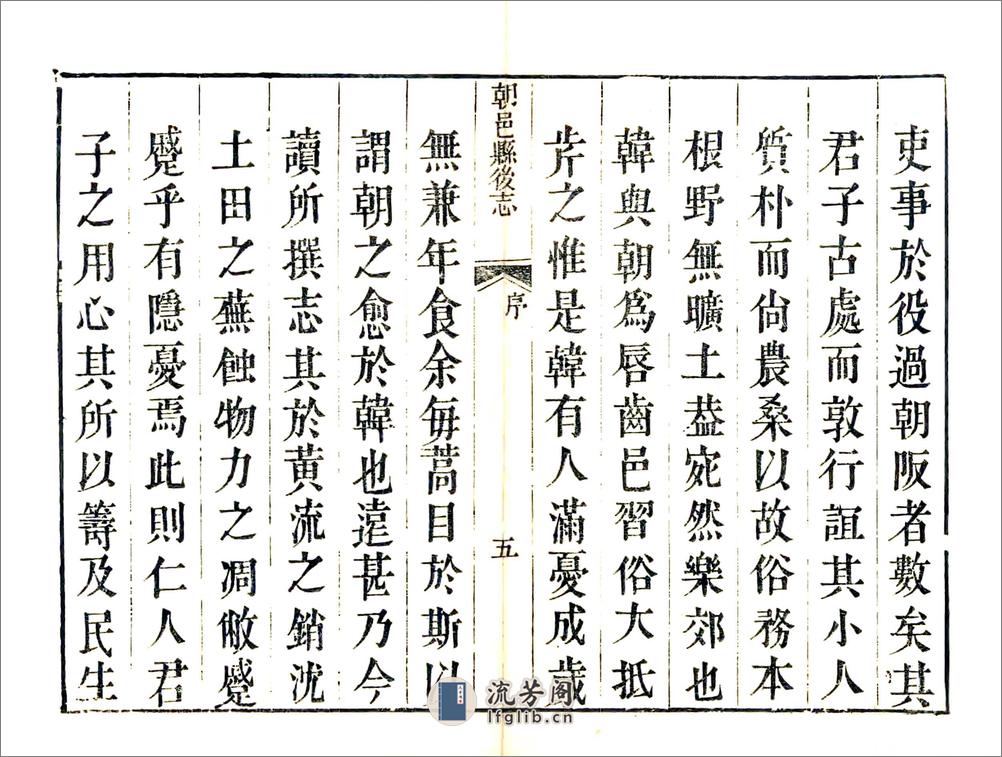 吏事於役過朝阪者數矣其
君子古處而敦行誼其小人
質朴而尙農桑以故俗務本
根野無曠土葢宛然樂郊也
韓與朝爲唇齒邑習俗大抵
岸之惟是韓有人滿憂成歲
朝邑縣後志
序
五
無兼年食余每蒿目於斯以
謂朝之愈於韓也遠甚乃今
讀所撰志其於黃流之銷沈
土田之蕪蝕物力之凋敝蹙
蹙乎有隱憂焉此則仁人君
子之用心其所以籌及民生
流芳阁
lfglib.cn